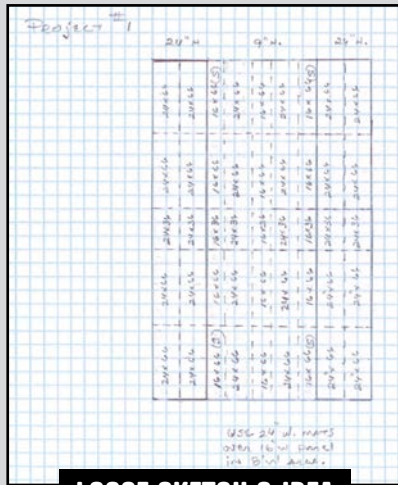 Project #1
24" H. 9" H. 24" H.
24x66 24x66 16x66(S) 24x66 16x66 24x66 16x66(S) 24x66 24x66
24x66 24x66 16x66 24x66 16x66 24x66 16x66 24x66 24x66
24x36 24x36 16x36 24x36 16x36 24x36 16x36 24x36 24x36
24x66 24x66 16x66 24x66 16x66 24x66 16x66 24"x66" 24"x66
24x66 24x66 16x66 24x66 16x66 24x66 16x66(S) 24"x66 24"x66
USE 24" w. mats
over 16"w panel
in 8'w area.